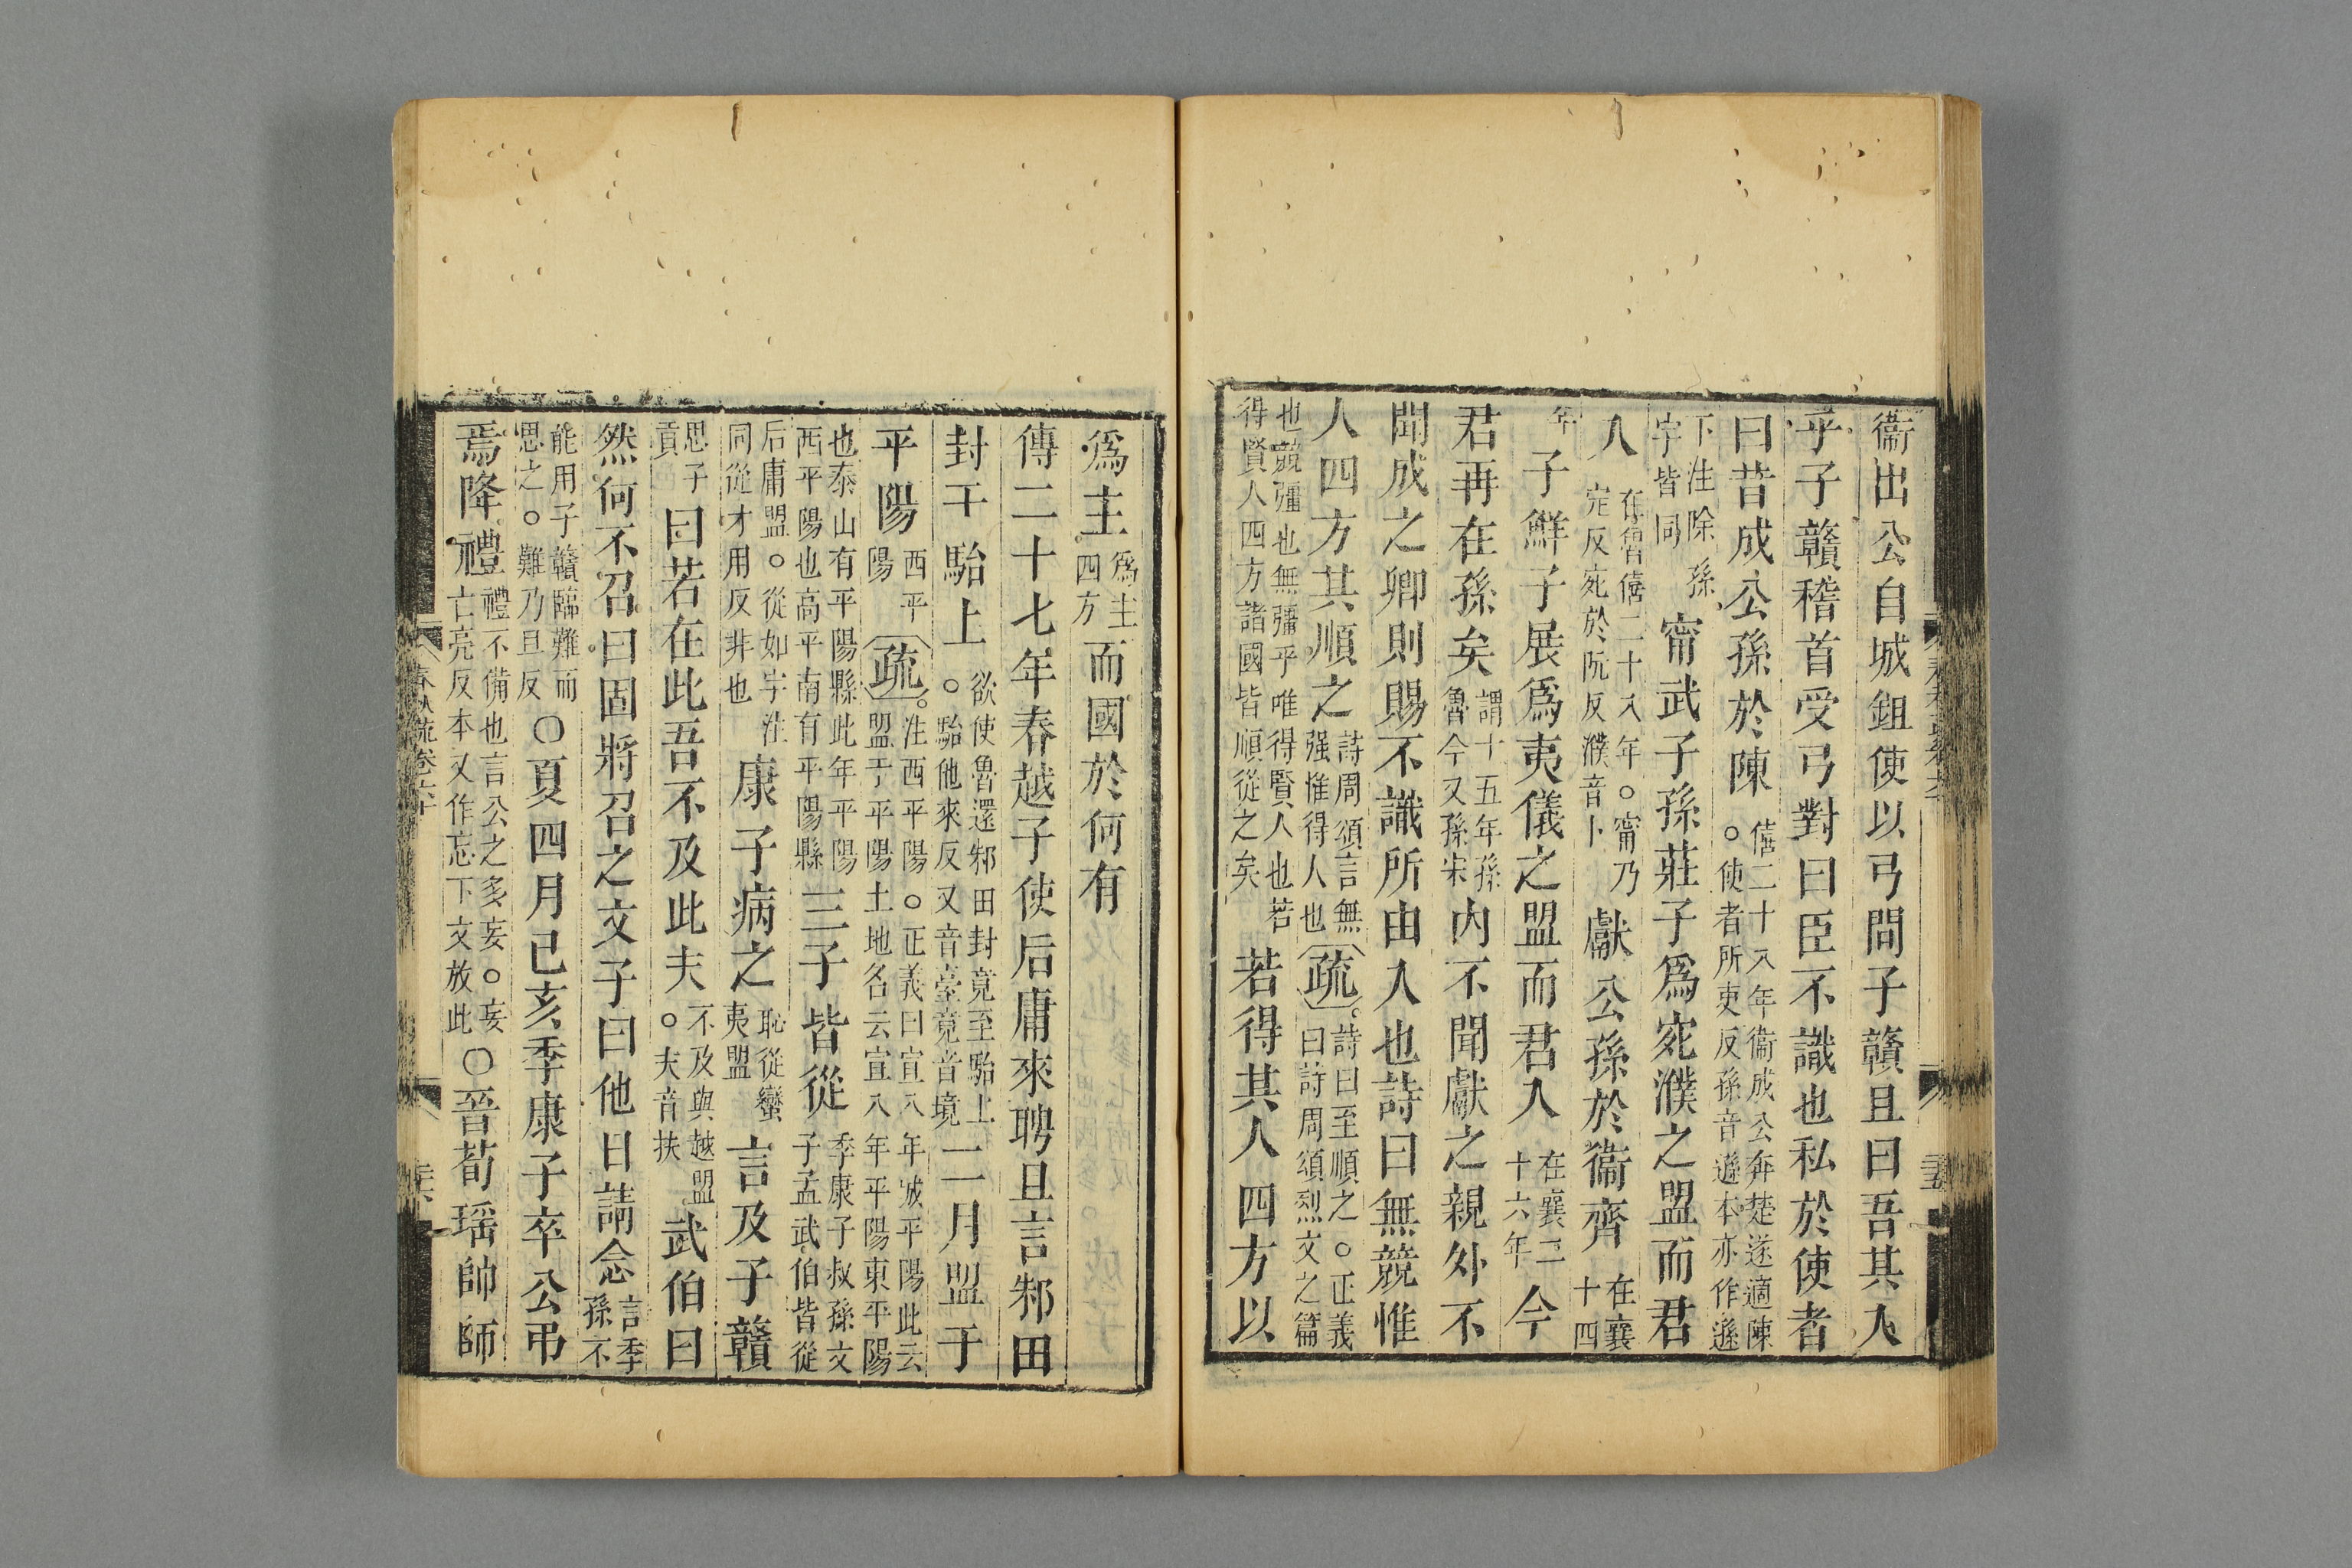 衞出公自城鉏使以弓問子贛且曰吾其入
乎子贛稽首受弓對曰臣不識也私於使者
曰昔成公孫於陳 僖二十八年衞成公奔楚遂適陳。使者所吏反孫音遜本亦作遜
下注除孫字皆同 甯武子孫莊子爲宛濮之盟而君
入 在魯僖二十八年。甯乃定反宛於阮反濮音卜 獻公孫於衞齊 在襄十四
年 子鮮子展爲夷儀之盟而君入 在襄二十六年 今
君再在孫矣 謂十五年孫魯今又孫宋 內不聞獻之親外不
聞成之卿則賜不識所由入也詩曰無競惟
人四方其順之 詩周頌言無强惟得人也 疏 詩曰至順之。正義曰詩周頌烈文之篇
也競彊也無彊乎唯得賢人也若得賢人四方諸國皆順從之矣 若得其人四方以
爲主 爲主四方 而國於何有
傳二十七年春越子使后庸來聘且言邾田
封于駘上 欲使魯還邾田封竟至駘上。駘他來反又音臺竟音境 二月盟于
平陽 西平陽 疏 注西平陽。正義曰宣八年城平陽此云盟于平陽土地名云宣八年平陽東平陽
也泰山有平陽縣此年平陽西平陽也高平南有平陽縣 三子皆從 季康子叔孫文子孟武伯皆從
后庸盟。從如字注同從才用反非也 康子病之 恥從蠻夷盟 言及子贛
思子貢 曰若在此吾不及此夫 不及與越盟。夫音扶 武伯曰
然何不召曰固將召之文子曰他日請念 言季孫不
能用子贛臨難而思之。難乃旦反 〇夏四月己亥季康子卒公弔
焉降禮 禮不備也言公之多妄。妄亡亮反本又作忘下文放此 〇晉荀瑤帥師
春秋疏卷六十